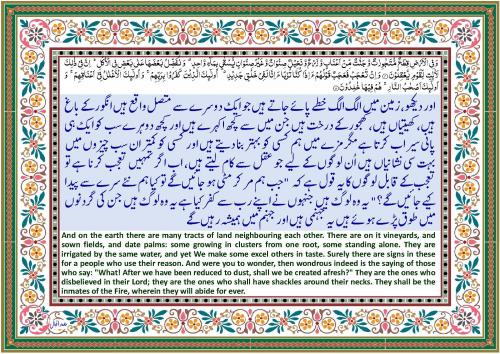 وَفِى الْاَرْضِ قِطَعٌ مُّتَجٰوِرٰتٌ وَّجَنّٰتٌ مِّنْ اَعْنَابٍ وَّزَرْعٌ وَّنَخِيْلٌ صِنْوَانٌ وَّغَيْرُ صِنْوَانٍ يُّسْقٰى بِمَآءٍ وَّاحِدٍ ۫ وَنُفَضِّلُ بَعْضَهَا عَلٰى بَعْضٍ فِى الْاُكُلِ ؕ اِنَّ فِىْ ذٰلِكَ
لَاٰيٰتٍ لِّقَوْمٍ يَّعْقِلُوْنَ وَاِنْ تَعْجَبْ فَعَجَبٌ قَوْلُهُمْ ءَاِذَا كُنَّا تُرٰبًا ءَاِنَّا لَفِىْ خَلْقٍ جَدِيْدٍ ؕ اُولٰٓئِكَ الَّذِيْنَ كَفَرُوْا بِرَبِّهِمْ ۚ وَاُولٰٓئِكَ الْاَغْلٰلُ فِىْۤ اَعْنَاقِهِمْ ۚ وَ
اُولٰٓئِكَ اَصْحٰبُ النَّارِ ۚ هُمْ فِيْهَا خٰلِدُوْنَ
اور دیکھو، زمین میں الگ الگ خطے پائے جاتے ہیں جو ایک دوسرے سے متصل واقع ہیں انگور کے باغ
ہیں، کھیتیاں ہیں، کھجور کے درخت ہیں جن میں سے کچھ اکہرے ہیں اور کچھ دوہرے سب کو ایک ہی
پانی سیراب کرتا ہے مگر مزے میں ہم کسی کو بہتر بنا دیتے ہیں اور کسی کو کمتر ان سب چیزوں میں
بہت سی نشانیاں ہیں اُن لوگوں کے لیے جو عقل سے کام لیتے ہیں، اب اگر تمہیں تعجب کرنا ہے تو
تعجب کے قابل لوگوں کا یہ قول ہے کہ "جب ہم مر کر مٹی ہو جائیں گے تو کیا ہم نئے سرے سے پیدا
کیے جائیں گے؟" یہ وہ لوگ ہیں جنہوں نے اپنے رب سے کفر کیا ہے یہ وہ لوگ ہیں جن کی گردنوں
میں طوق پڑے ہوئے ہیں یہ جہنمی ہیں اور جہنم میں ہمیشہ رہیں گے
And on the earth there are many tracts of land neighbouring each other. There are on it vineyards, and
sown fields, and date palms: some growing in clusters from one root, some standing alone. They are
irrigated by the same water, and yet We make some excel others in taste. Surely there are signs in these
for a people who use their reason. And were you to wonder, then wondrous indeed is the saying of those
who say: "What! After we have been reduced to dust, shall we be created afresh?" They are the ones who
disbelieved in their Lord; they are the ones who shall have shackles around their necks. They shall be the
inmates of the Fire, wherein they will abide for ever.